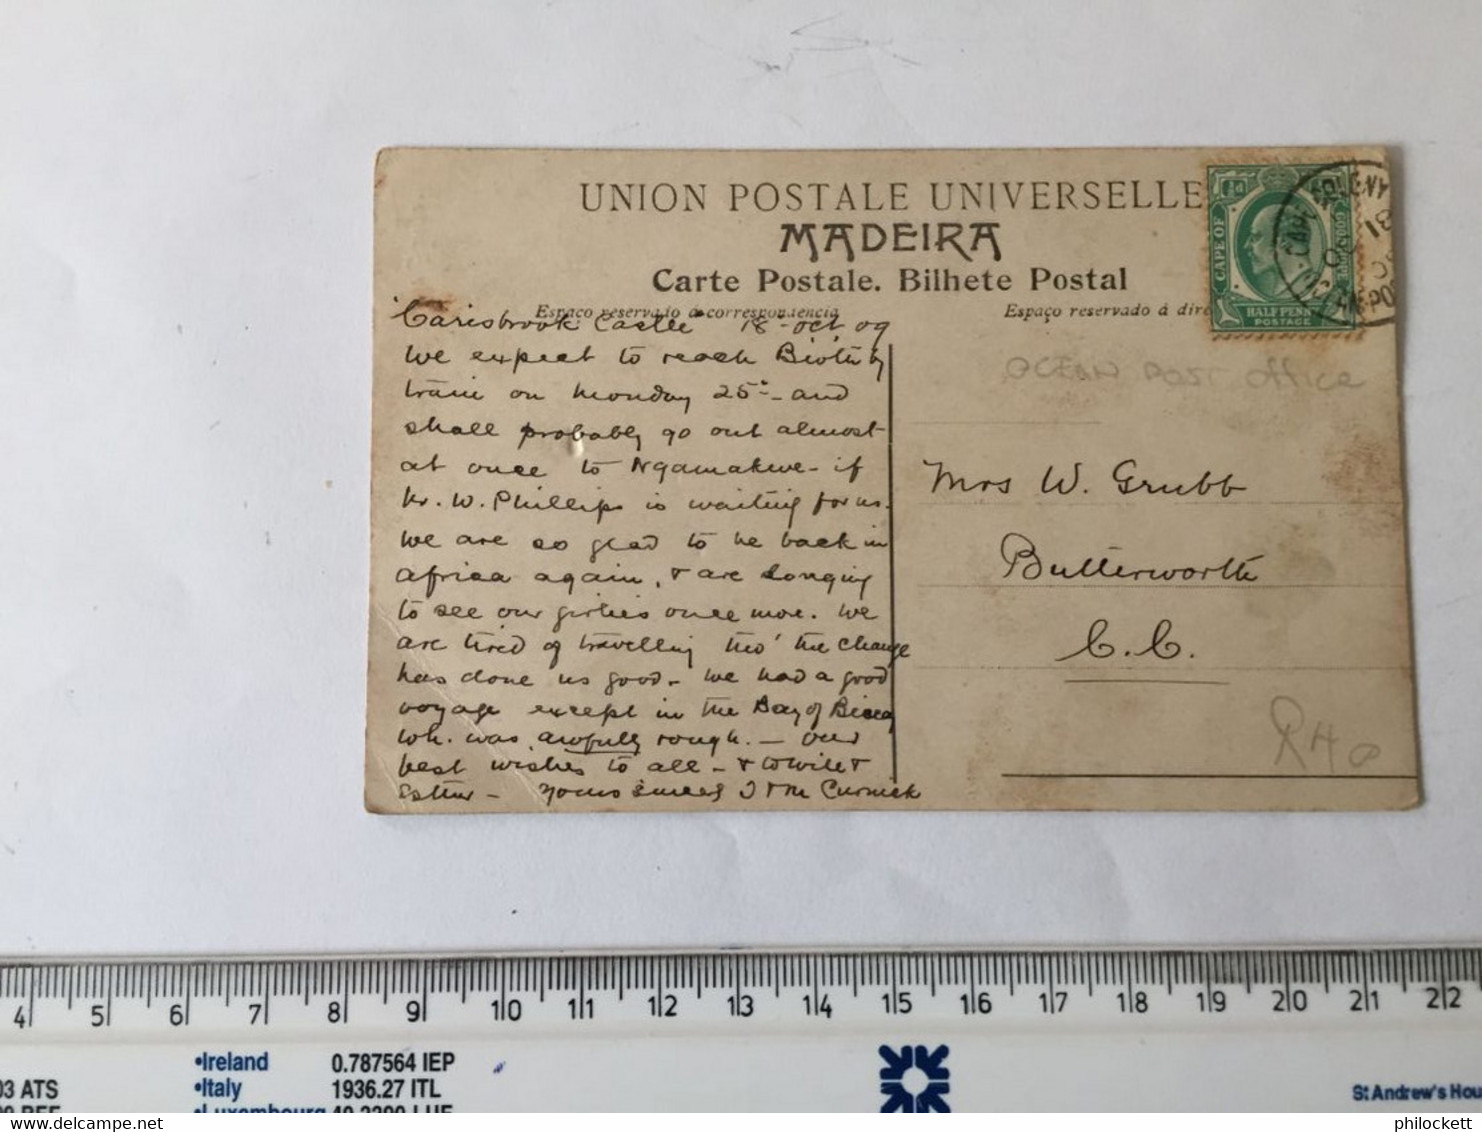 UNION POSTALE UNIVERSELLE
MADEIRA
Carte Postale. Bilhete Postal
Espaço reservado á correspondencia
Espaço reservado á
½d
CAPE OF
GOOD HOPE
HALF PENNY
POSTAGE
OCEAN POST OFFICE
"Carisbrook Castle" 18-Oct 09
We expect to reach by
train on Monday 25th - and
shall probably go out almost
at once to Nqamakwe - if
Mr. W. Phillips is waiting for us.
We are so glad to be back in
Africa again, & are longing
to see our girlies once more. We
are tired of travelling tho' the change
has done us good - We had a good
voyage except in the Bay of Biscay
wh. was awfully rough. — Our
best wishes to all - &
Esther - Yours J & M
Mrs W. Grubb
Butterworth
C.C.
4 5 6 7 8 9 10 11 12 13 14 15 16 17 18 19 20 21 22
•Ireland 0.787564 IEP
03 ATS •Italy 1936.27 ITL
•Luxembourg 40.3399 LUF
St Andrew's Hou
philockett